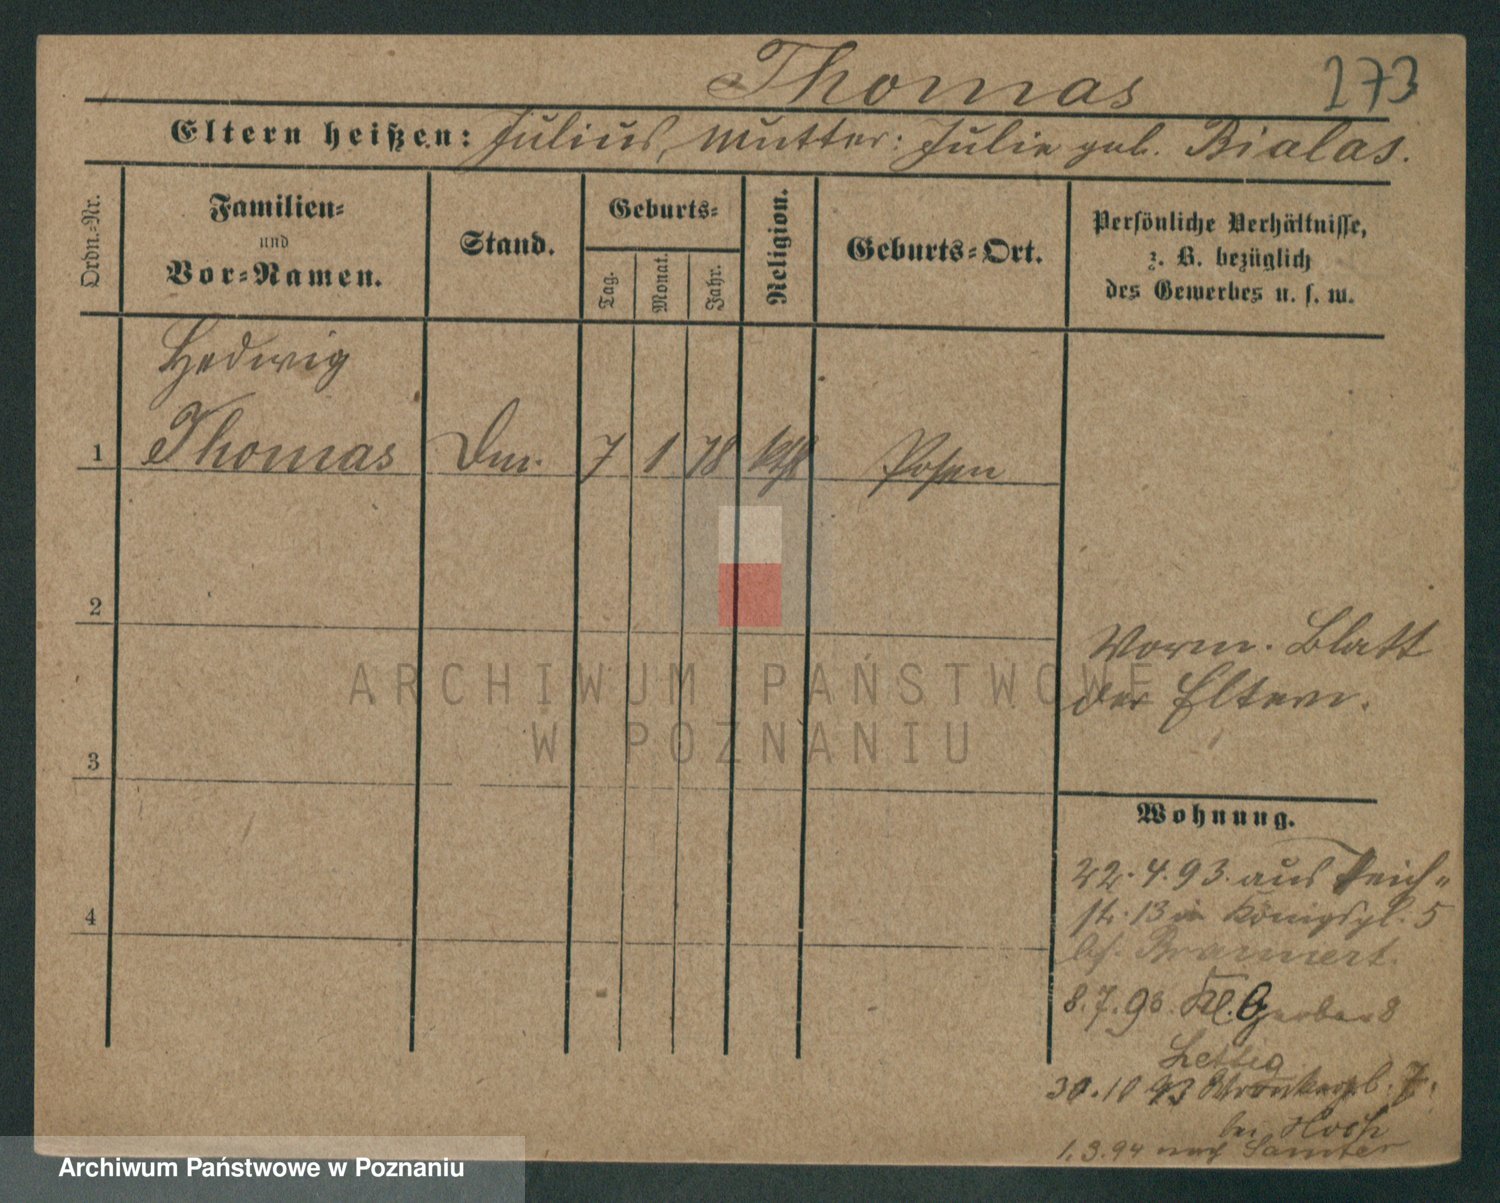 Thomas
273
Eltern heißen: Julius, Mutter: Julie geb. Bialas.
Ordn.-Nr.
Familien-
und
Vor-Namen.
Stand.
Geburts-
Tag.
Monat.
Jahr.
Religion.
Geburts-Ort.
Persönliche Verhältnisse,
z. B. bezüglich
des Gewerbes u. s. w.
Hedwig
1 Thomas Dm. 7 1 78 kth Posen
2
Vorm. Blatt
der Eltern.
3
4
Wohnung.
22.4.93. aus Teich-
str. 13 in Königspl. 5
8.7.93. Kl. Gerber 8
30.10 93 7.
bei
1.3.94 nach Samter
ARCHIWUM PAŃSTWOWE
W POZNANIU
Archiwum Państwowe w Poznaniu